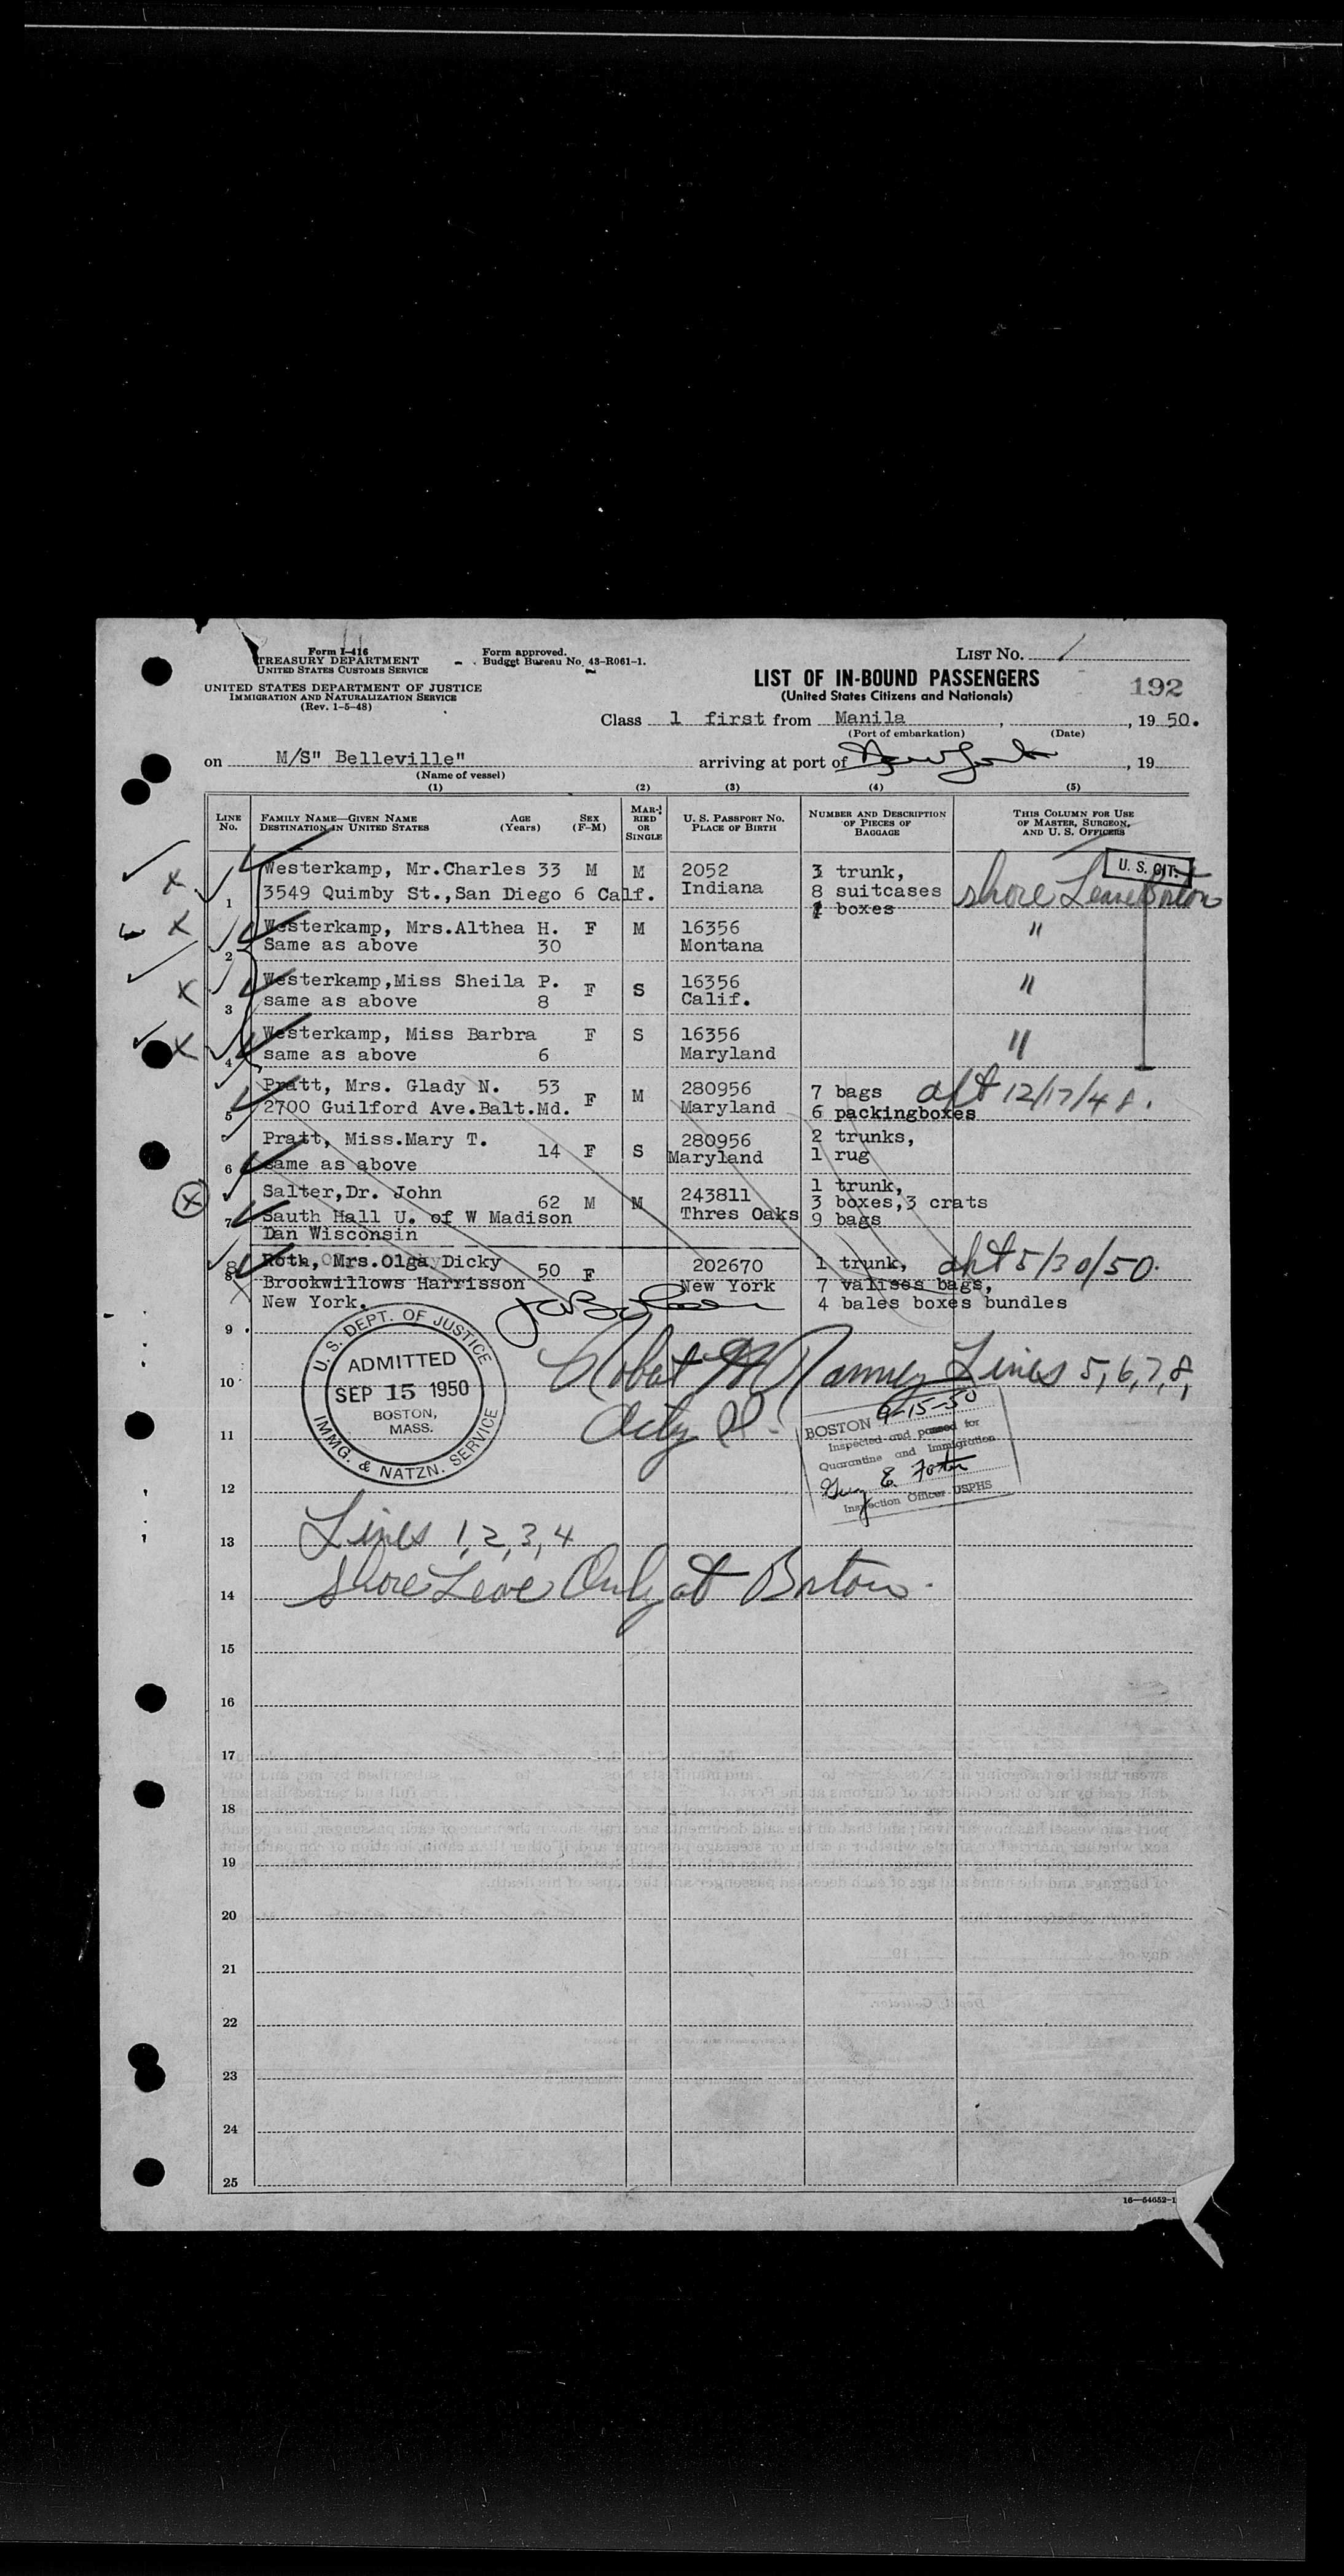 Form I-416
TREASURY DEPARTMENT
UNITED STATES CUSTOMS SERVICE
Form approved.
Budget Bureau No. 43-R061-1.
LIST NO. 1
UNITED STATES DEPARTMENT OF JUSTICE
IMMIGRATION AND NATURALIZATION SERVICE
(Rev. 1-5-48)
LIST OF IN-BOUND PASSENGERS
(United States Citizens and Nationals)
192
Class 1 first from Manila , , 19 50.
(Port of embarkation) (Date)
on M/S" Belleville" arriving at port of New York , 19
(Name of vessel)
(1) (2) (3) (4) (5)
LINE NO. FAMILY NAME—GIVEN NAME DESTINATION IN UNITED STATES AGE (Years) SEX (F-M) MARRIED OR SINGLE U. S. PASSPORT NO. PLACE OF BIRTH NUMBER AND DESCRIPTION OF PIECES OF BAGGAGE THIS COLUMN FOR USE OF MASTER, SURGEON, AND U. S. OFFICERS
U. S. CIT.
Westerkamp, Mr.Charles 33 M M 2052 3 trunk,
1 3549 Quimby St.,San Diego 6 Calf. Indiana 8 suitcases shore Leave Boston
boxes
Westerkamp, Mrs.Althea H. F M 16356 "
2 Same as above 30 Montana
Westerkamp,Miss Sheila P. F S 16356 "
3 same as above 8 Calif.
Westerkamp, Miss Barbra F S 16356 "
4 same as above 6 Maryland
Pratt, Mrs. Glady N. 53 F M 280956 7 bags aft 12/17/48.
5 2700 Guilford Ave.Balt.Md. Maryland 6 packingboxes
Pratt, Miss.Mary T. 14 F S 280956 2 trunks,
6 same as above Maryland 1 rug
Salter,Dr. John 62 M M 243811 1 trunk,
7 Sauth Hall U. of W Madison Thres Oaks 3 boxes,3 crats
Dan Wisconsin 9 bags
8 Roth, Mrs.Olga Dicky 50 F 202670 1 trunk, aft 5/30/50.
8 Brookwillows Harrisson New York 7 valises bags,
New York. 4 bales boxes bundles
9
U. S. DEPT. OF JUSTICE
ADMITTED
SEP 15 1950
BOSTON,
MASS.
IMMG. & NATZN. SERVICE
10 Robert Lines 5,6,7,8,
11
BOSTON 9-15-50
Inspected and passed for
Quarantine and Immigration
Guy E. Foster
Inspection Officer USPHS
12
13 Lines 1,2,3,4
14 Shore Leave Only at Boston.
15
16
17
18
19
20
21
22
23
24
25
16—54652-1